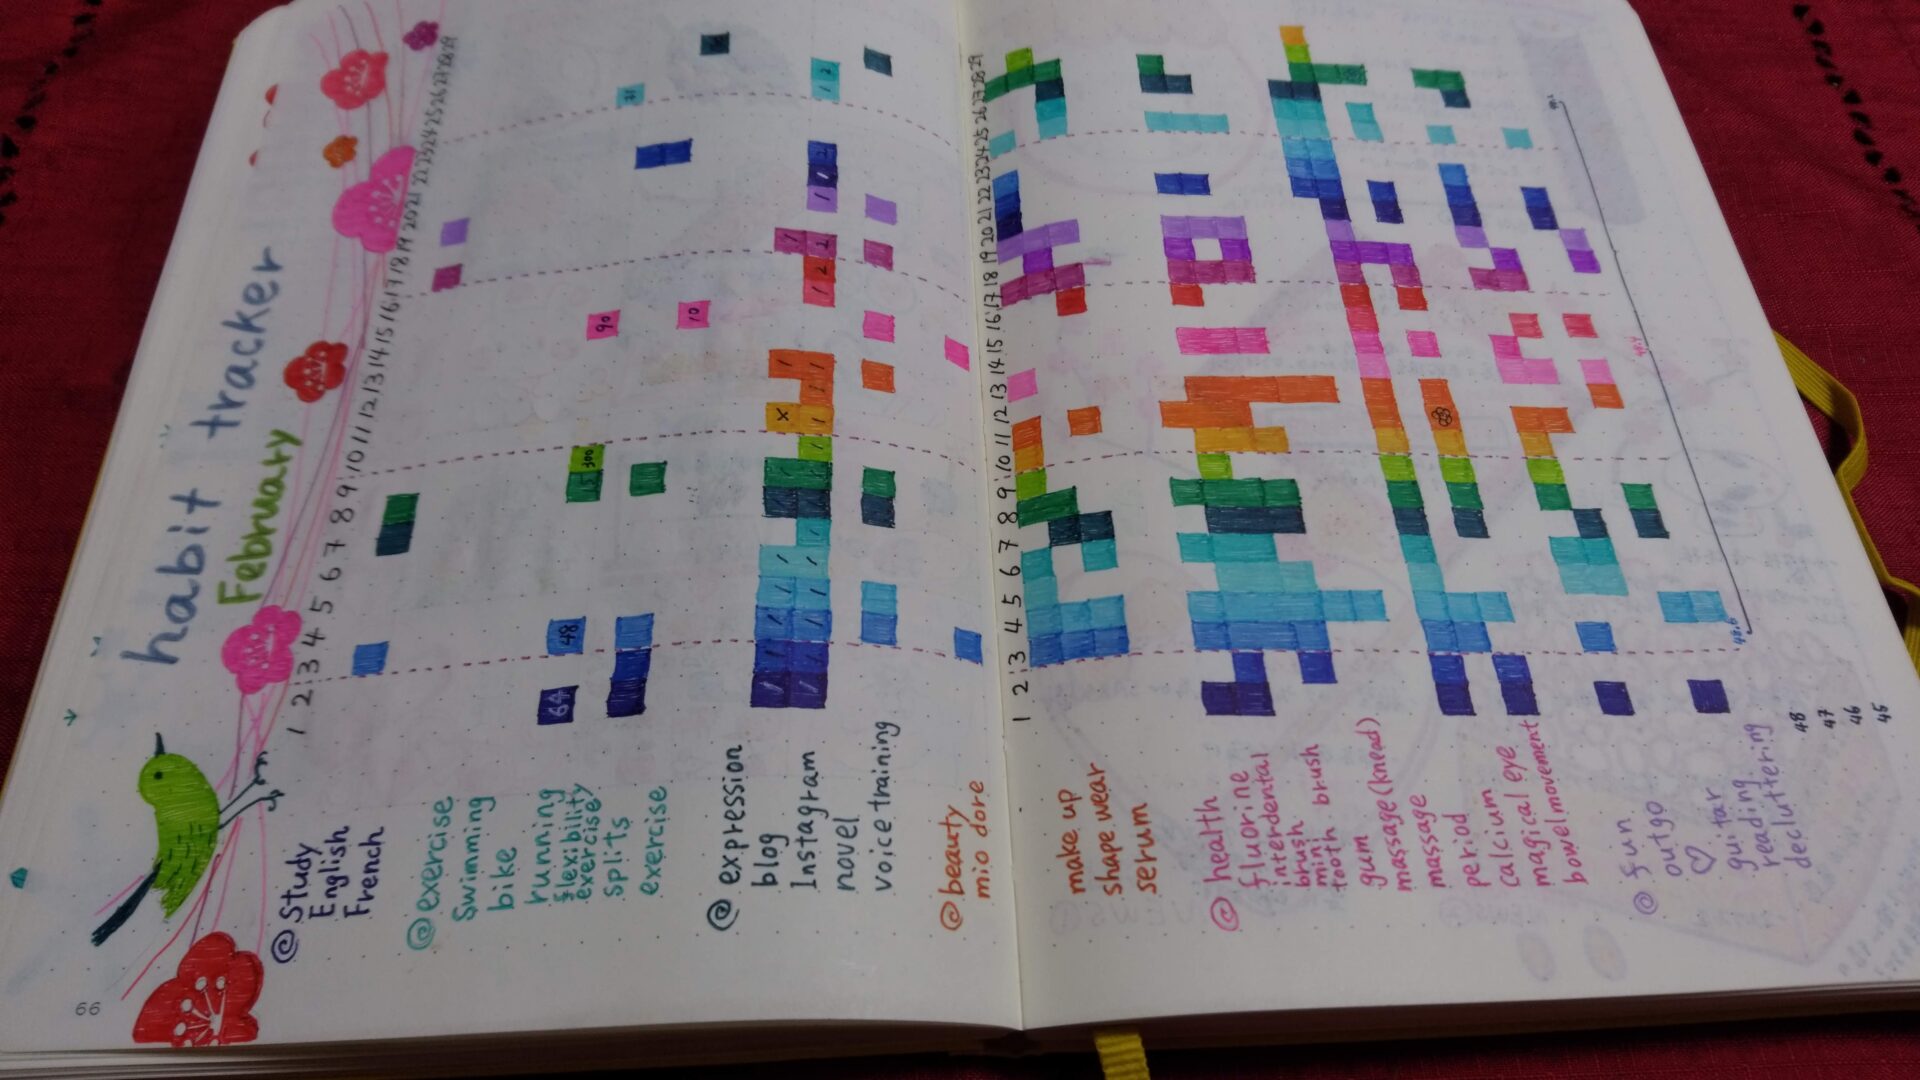 habit tracker
February
1 2 3 4 5 6 7 8 9 10 11 12 13 14 15 16 17 18 19 20 21 22 23 24 25 26 27 28 29
@ Study
English
French
@ exercise
Swimming
bike
running
flexibility
exercise
splits
exercise
@ expression
blog
Instagram
novel
voice training
@ beauty
mio dore
66
1 2 3 4 5 6 7 8 9 10 11 12 13 14 15 16 17 18 19 20 21 22 23 24 25 26 27 28 29
make up
shape wear
serum
@ health
fluorine
interdental
brush
mini
tooth brush
gum
massage (knead)
massage
period
calcium
magical eye
bowel movement
@ fun
outgo
♡
guitar
reading
decluttering
48
47
46
45
64
48
300
90
10